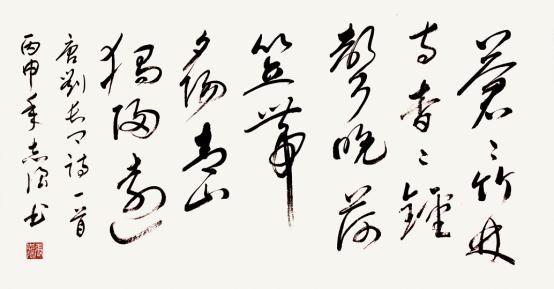 蒼〻竹林
寺杳〻鐘
聲晚荷
笠帶
夕陽青山
獨歸遠
唐劉長卿詩一首
丙申年志 书